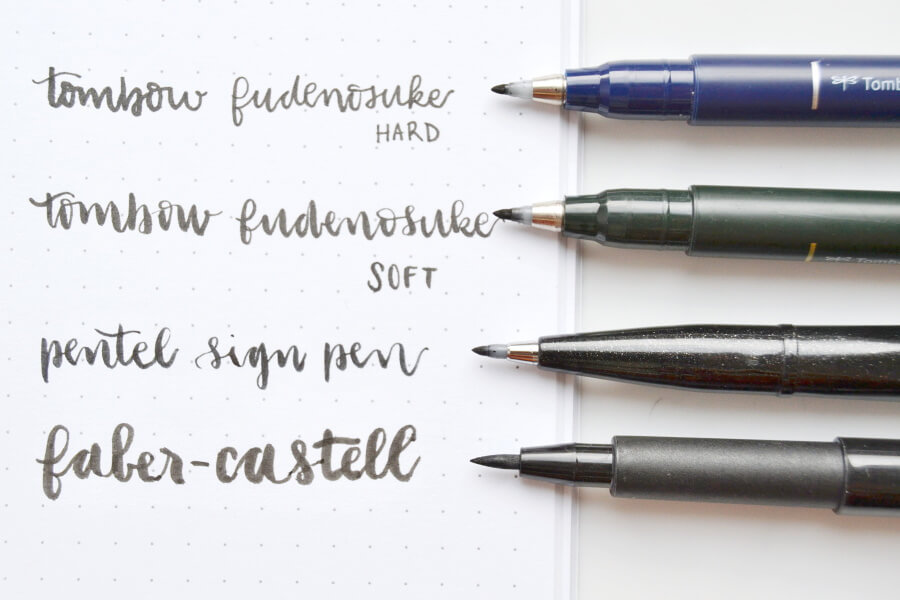 tombow fudenosuke
HARD
Tomb
tombow fudenosuke
SOFT
Tomb
pentel sign pen
faber-castell